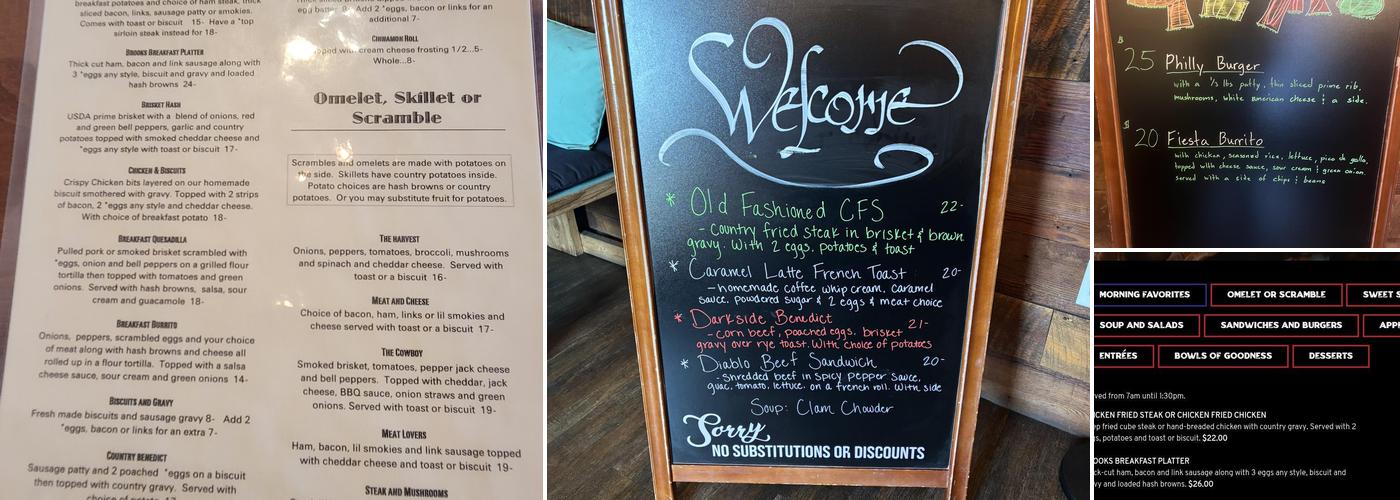 breakfast potatoes and choice of ham steak, thick
sliced bacon, links, sausage patty or smokies.
Comes with toast or biscuit 15- Have a *top
sirloin steak instead for 18-
BROOKS BREAKFAST PLATTER
Thick cut ham, bacon and link sausage along with
3 *eggs any style, biscuit and gravy and loaded
hash browns 24-
BRISKET HASH
USDA prime brisket with a blend of onions, red
and green bell peppers, garlic and country
potatoes topped with smoked cheddar cheese and
*eggs any style with toast or biscuit 17-
CHICKEN & BISCUITS
Crispy Chicken bits layered on our homemade
biscuit smothered with gravy. Topped with 2 strips
of bacon, 2 *eggs any style and cheddar cheese.
With choice of breakfast potato 18-
BREAKFAST QUESADILLA
Pulled pork or smoked brisket scrambled with
*eggs, onion and bell peppers on a grilled flour
tortilla then topped with tomatoes and green
onions. Served with hash browns, salsa, sour
cream and guacamole 18-
BREAKFAST BURRITO
Onions, peppers, scrambled eggs and your choice
of meat along with hash browns and cheese all
rolled up in a flour tortilla. Topped with a salsa
cheese sauce, sour cream and green onions 14-
BISCUITS AND GRAVY
Fresh made biscuits and sausage gravy 8- Add 2
*eggs, bacon or links for an extra 7-
COUNTRY BENEDICT
Sausage patty and 2 poached *eggs on a biscuit
then topped with country gravy. Served with
Add 2 *eggs, bacon or links for an
additional 7-
CINNAMON ROLL
cream cheese frosting 1/2...5-
Whole...8-
Omelet, Skillet or
Scramble
Scrambles and omelets are made with potatoes on
the side. Skillets have country potatoes inside.
Potato choices are hash browns or country
potatoes. Or you may substitute fruit for potatoes.
THE HARVEST
Onions, peppers, tomatoes, broccoli, mushrooms
and spinach and cheddar cheese. Served with
toast or a biscuit 16-
MEAT AND CHEESE
Choice of bacon, ham, links or lil smokies and
cheese served with toast or a biscuit 17-
THE COWBOY
Smoked brisket, tomatoes, pepper jack cheese
and bell peppers. Topped with cheddar, jack
cheese, BBQ sauce, onion straws and green
onions. Served with toast or biscuit 19-
MEAT LOVERS
Ham, bacon, lil smokies and link sausage topped
with cheddar cheese and toast or biscuit 19-
STEAK AND MUSHROOMS
Welcome
* Old Fashioned CFS 22-
- Country fried steak in brisket & brown
gravy. With 2 eggs, potatoes & toast
* Caramel Latte French Toast 20-
- homemade coffee whip cream, caramel
sauce, powdered sugar & 2 eggs & meat choice
* Darkside Benedict 21-
- corn beef, poached eggs, brisket
gravy over rye toast. With choice of potatoes
* Diablo Beef Sandwich 20-
- Shredded beef in spicy pepper sauce,
guac, tomato, lettuce, on a french roll. With side
Soup: Clam Chowder
Sorry
NO SUBSTITUTIONS OR DISCOUNTS
$25 Philly Burger
with a 1/3 lbs patty, thin sliced prime rib,
mushrooms, white american cheese & a side.
$20 Fiesta Burrito
with chicken, seasoned rice, lettuce, pico de gallo,
topped with cheese sauce, sour cream & green onion.
served with a side of chips & beans
MORNING FAVORITES OMELET OR SCRAMBLE SWEET S
SOUP AND SALADS SANDWICHES AND BURGERS APP
ENTRÉES BOWLS OF GOODNESS DESSERTS
ved from 7am until 1:30pm.
CKEN FRIED STEAK OR CHICKEN FRIED CHICKEN
ep fried cube steak or hand-breaded chicken with country gravy. Served with 2
gs, potatoes and toast or biscuit. $22.00
OOKS BREAKFAST PLATTER
ck-cut ham, bacon and link sausage along with 3 eggs any style, biscuit and
vy and loaded hash browns. $26.00